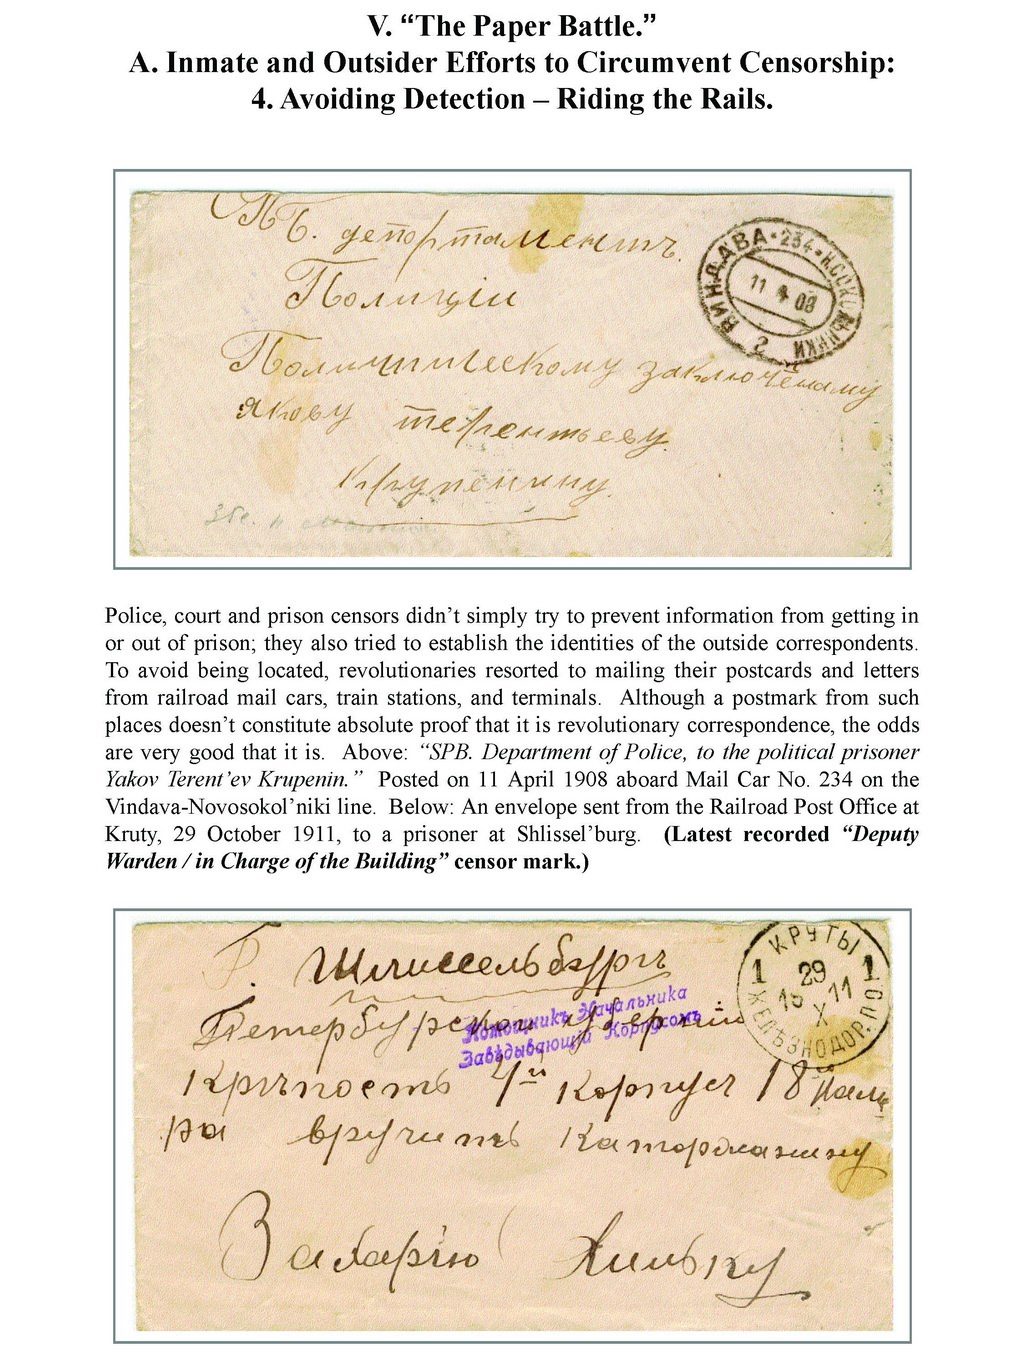 V. “The Paper Battle.”
A. Inmate and Outsider Efforts to Circumvent Censorship:
4. Avoiding Detection – Riding the Rails.
СПБ. департаментъ
Полиціи
Политическому заключеному
Якову терентьеву
Крупенину
ВИНДАВА • 234 • Н.СОКОЛЬНИКИ 2
11 4 08
Police, court and prison censors didn’t simply try to prevent information from getting in
or out of prison; they also tried to establish the identities of the outside correspondents.
To avoid being located, revolutionaries resorted to mailing their postcards and letters
from railroad mail cars, train stations, and terminals. Although a postmark from such
places doesn’t constitute absolute proof that it is revolutionary correspondence, the odds
are very good that it is. Above: “SPB. Department of Police, to the political prisoner
Yakov Terent’ev Krupenin.” Posted on 11 April 1908 aboard Mail Car No. 234 on the
Vindava-Novosokol’niki line. Below: An envelope sent from the Railroad Post Office at
Kruty, 29 October 1911, to a prisoner at Shlissel’burg. (Latest recorded “Deputy
Warden / in Charge of the Building” censor mark.)
Г. Шлиссельбургъ
Петербурской губерніи
Крѣпость 4й Корпус 18 каме
ра вручить Каторжанину
Захарію Хильку
Помощникъ Начальника
Завѣдывающій Корпусомъ
КРУТЫ
1 29 1
X 11
ЖЕЛѢЗНОДОР. ПО